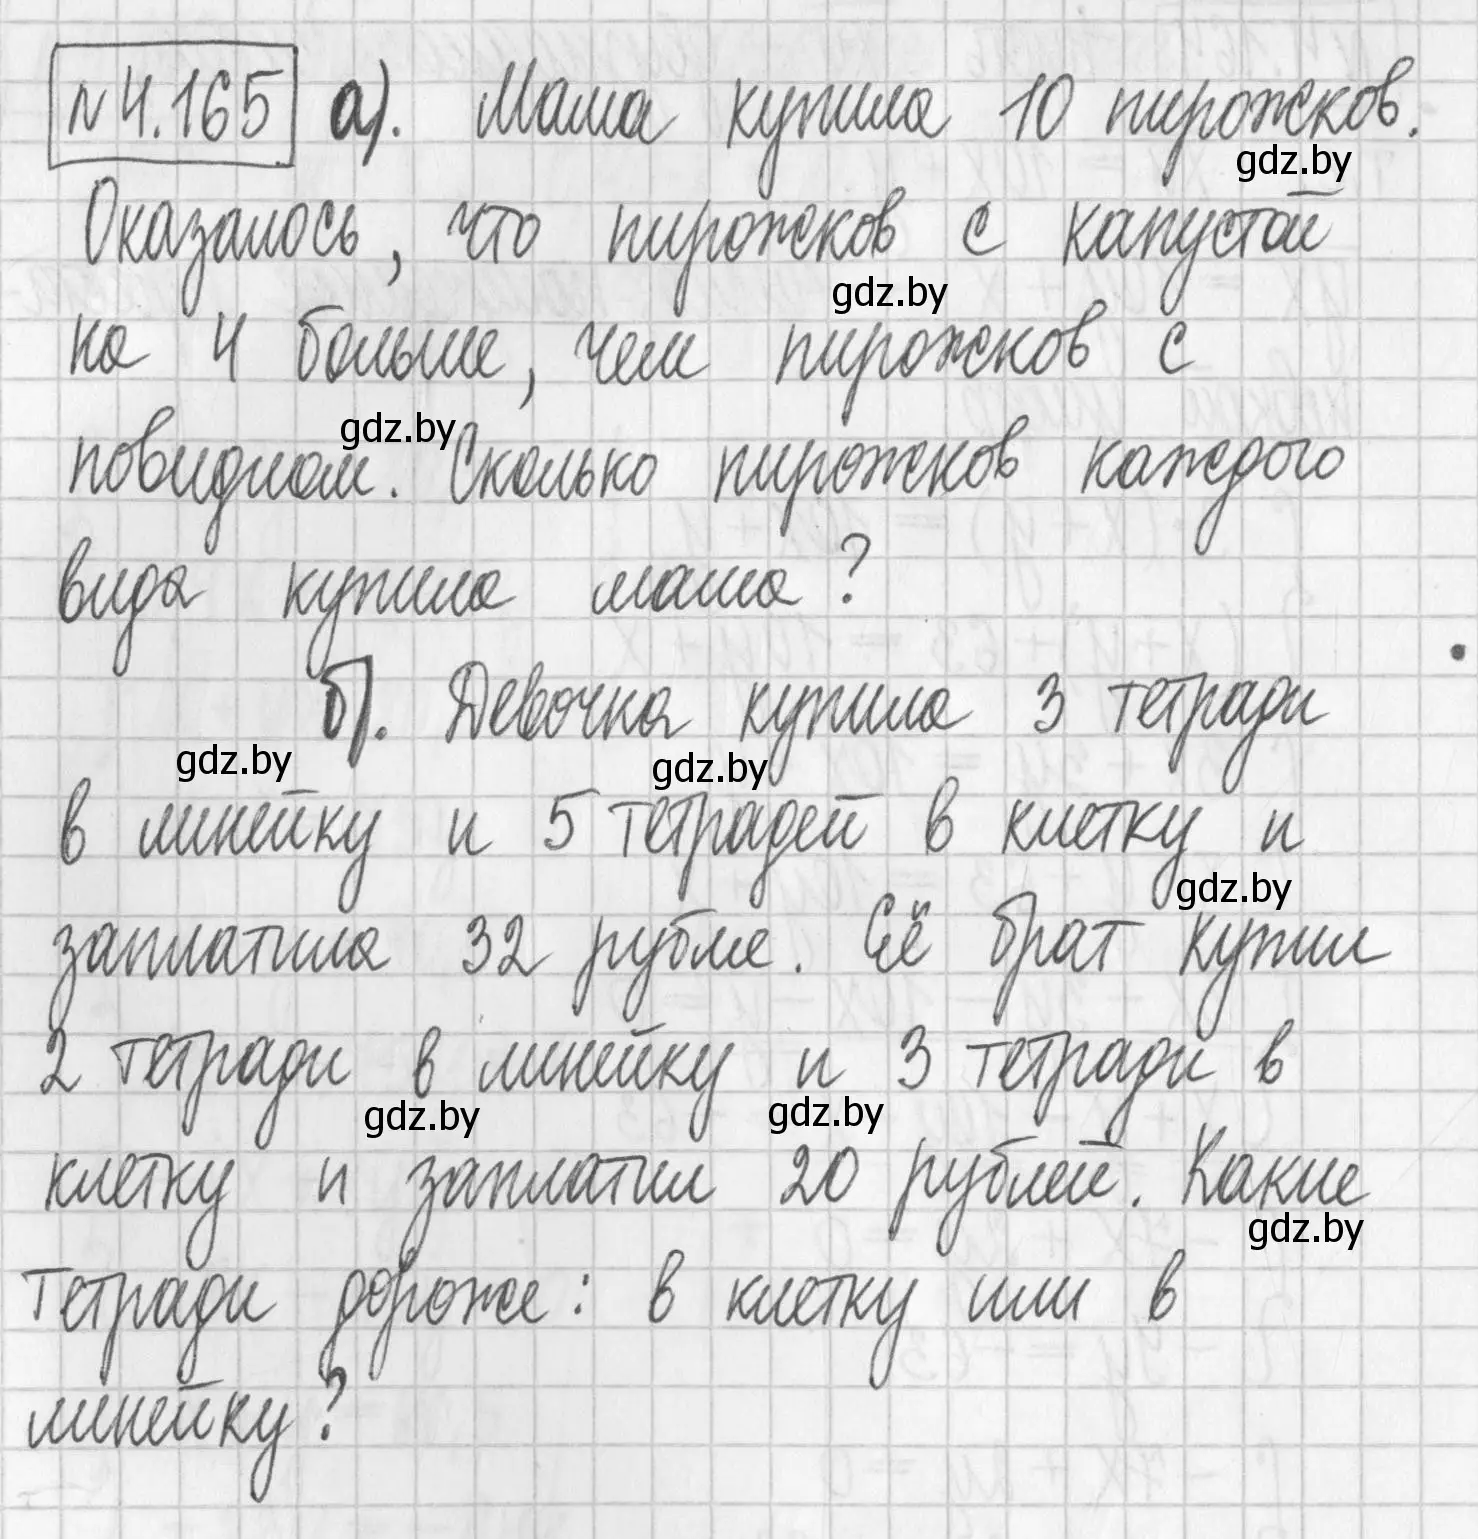 №4.165 а). Мама купила 10 пирожков.
gdz.by
Оказалось, что пирожков с капустой
gdz.by
на 4 больше, чем пирожков с
gdz.by
повидлом. Сколько пирожков каждого
вида купила мама?
б). Девочка купила 3 тетради
gdz.by gdz.by
в линейку и 5 тетрадей в клетку и
gdz.by
заплатила 32 рубле. Её брат купил
2 тетради в линейку и 3 тетради в
gdz.by gdz.by
клетку и заплатил 20 рублей. Какие
gdz.by
тетради дороже: в клетку или в
линейку?